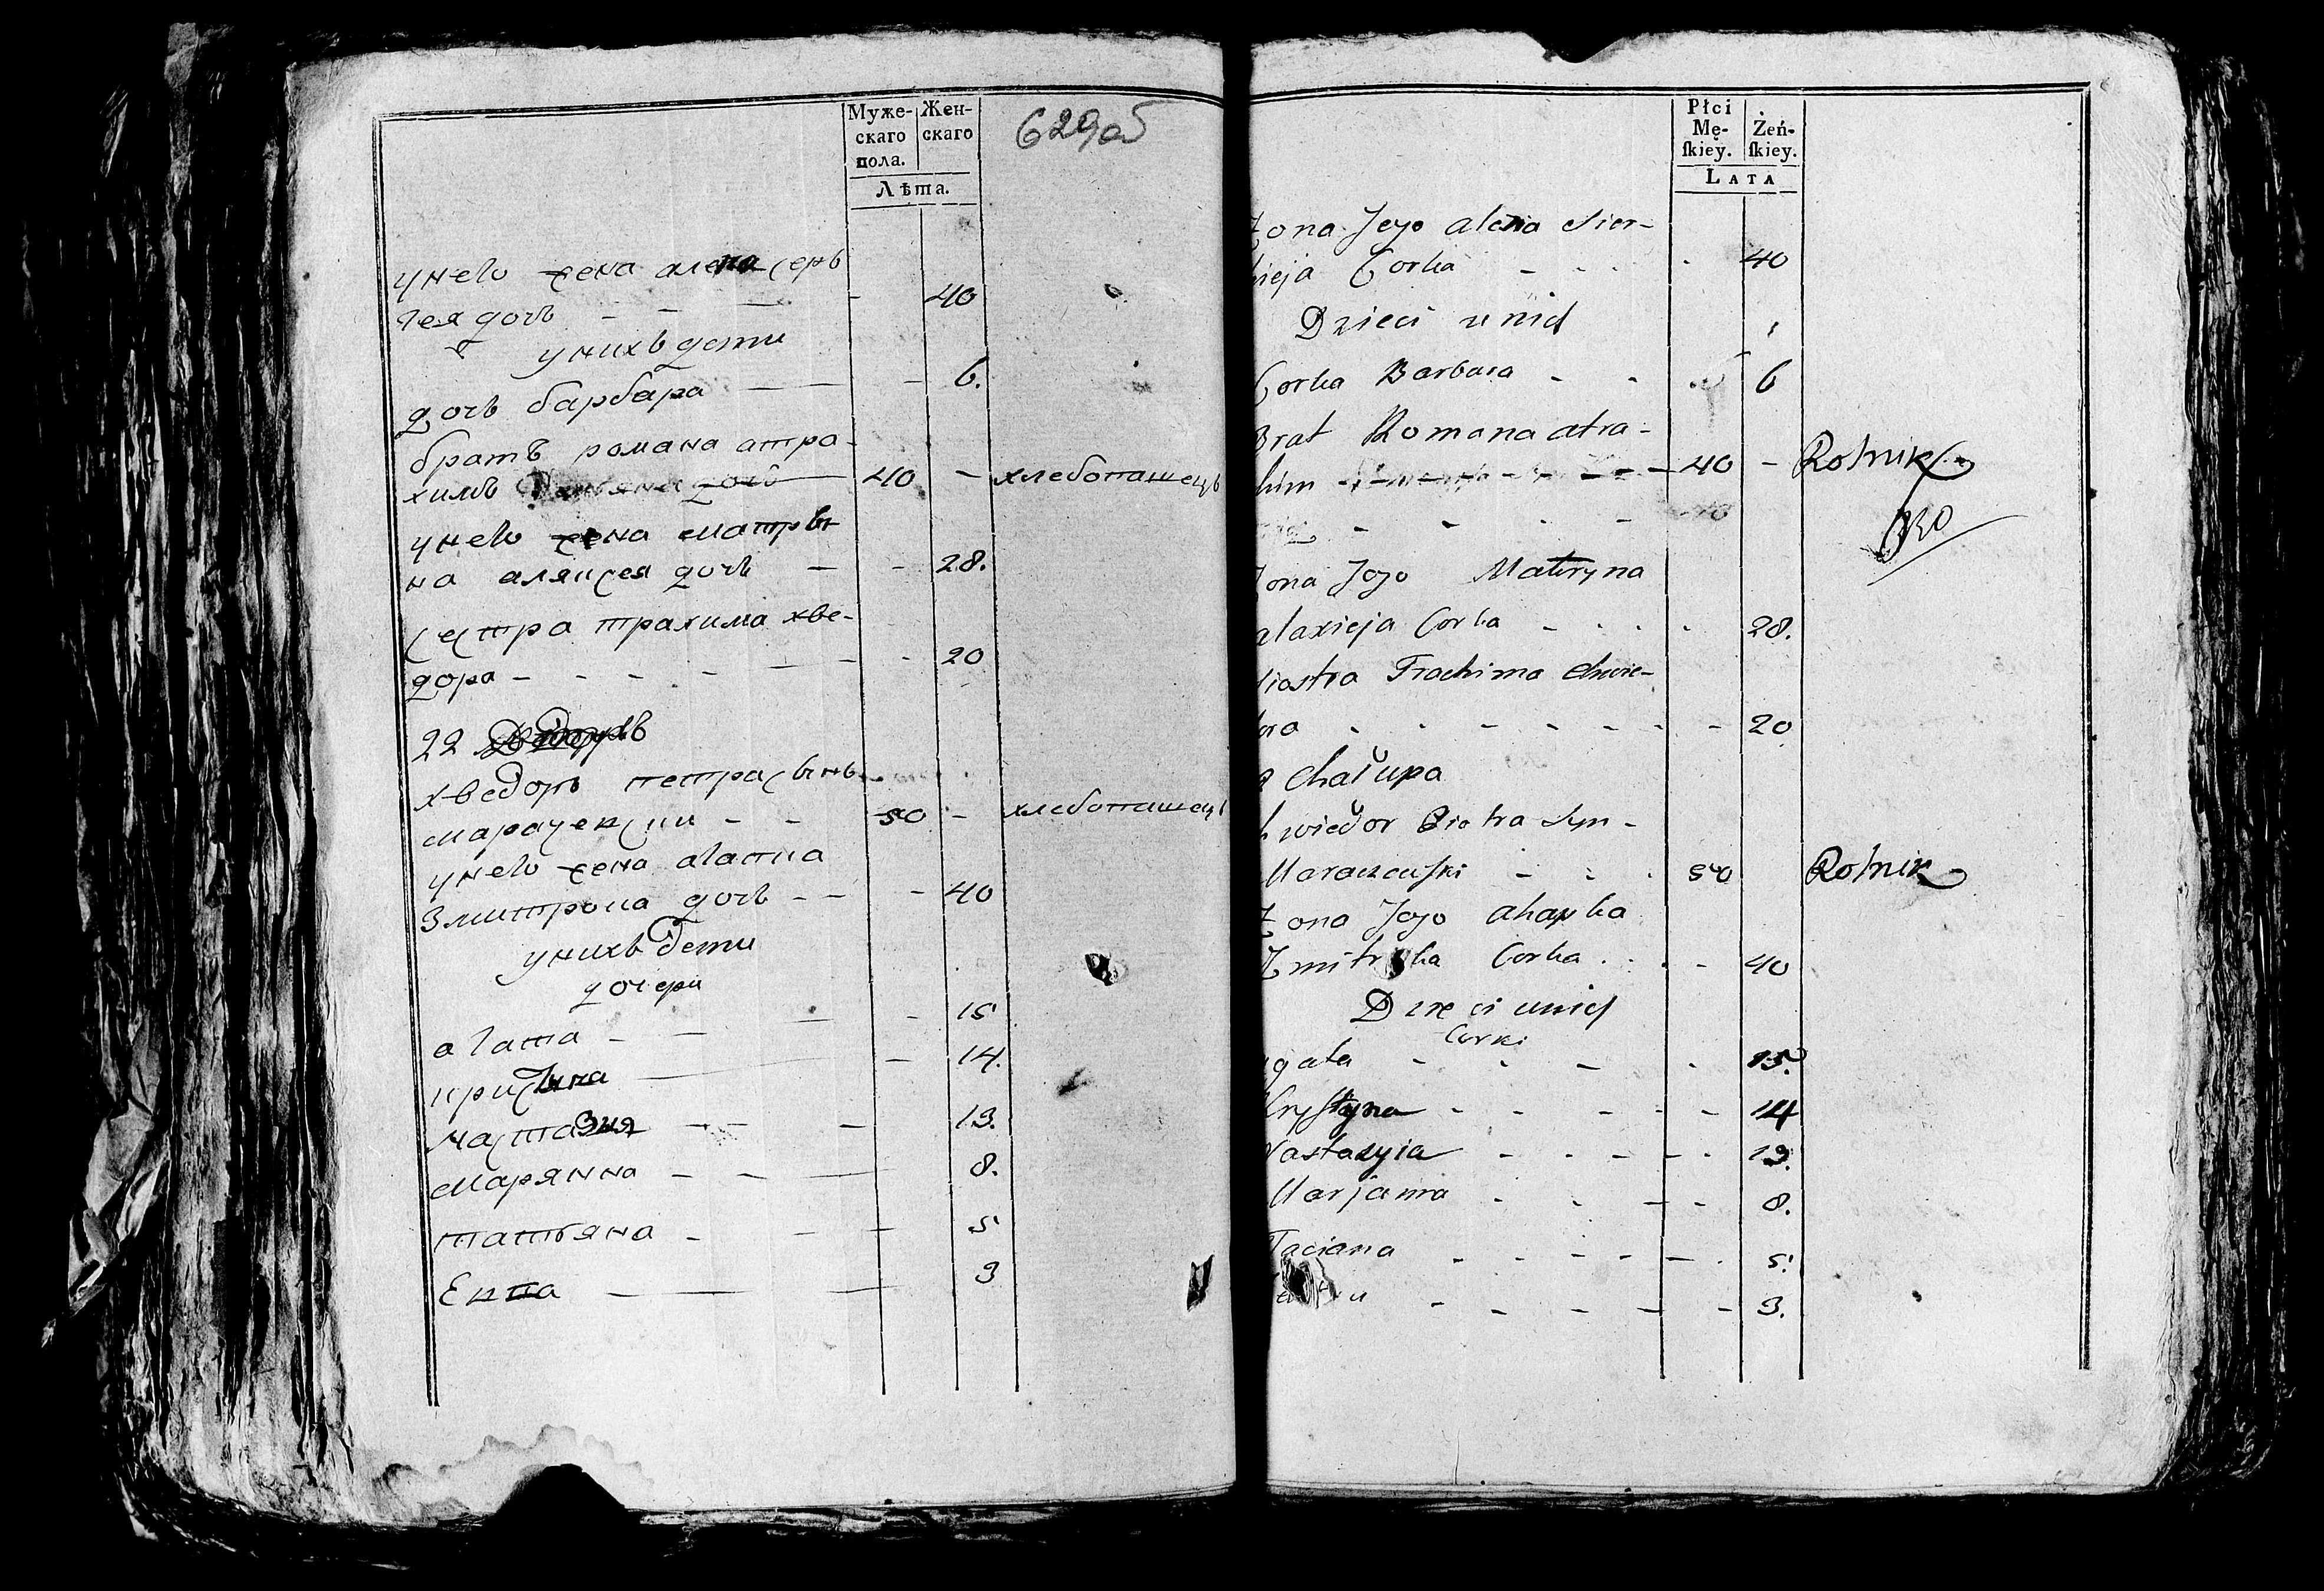 Муже-
скаго
пола.
Жен-
скаго
Лѣта.
629об
унево жена алена серь
гея дочь - - - - 40
унихъ дети
дочь барбара - - - 6.
братъ романа атра-
химъ - 40 - хлебопашецъ
унево жена матры
на аляксея дочь - - 28.
сестра трахима хве-
дора - - - - - - 20
22
хведоръ петра сынъ
марачекски - - 50 - хлебопашец
унево жена агапка
Змитрока дочь - - - 40
унихъ дети
дочери
агата - - - - 15
кристына - - 14.
настазия - - - 13.
марянна - - - 8.
татьяна - - - 5
Евка - - - 3
Płci
Mę-
ſkiey.
Żeń-
ſkiey.
LATA
Zona Jego alena Sier-
hieja Corka - - - - 40
Dzieci u nich
Corka Barbara - - - 6
Brat Romana atra-
him - - - - - 40 - Rolnik
Zona Jego Matryna
alaxieja Corka - - - - 28.
Siostra Trachima Chwie-
dora - - - - - - - - 20
Chałupa
Chwiedor Piotra Syn -
Maraczewski - - - 50 Rolnik
Zona Jego ahapka
Zmitroka Corka - - - - 40
Dzieci u nich
Corki
agata - - - - 15.
Krystyna - - - - - 14
Nastazyia - - - - - - 13.
Marjanna - - - - 8.
Taciana - - - - - - - 5.
- - - - - - 3.